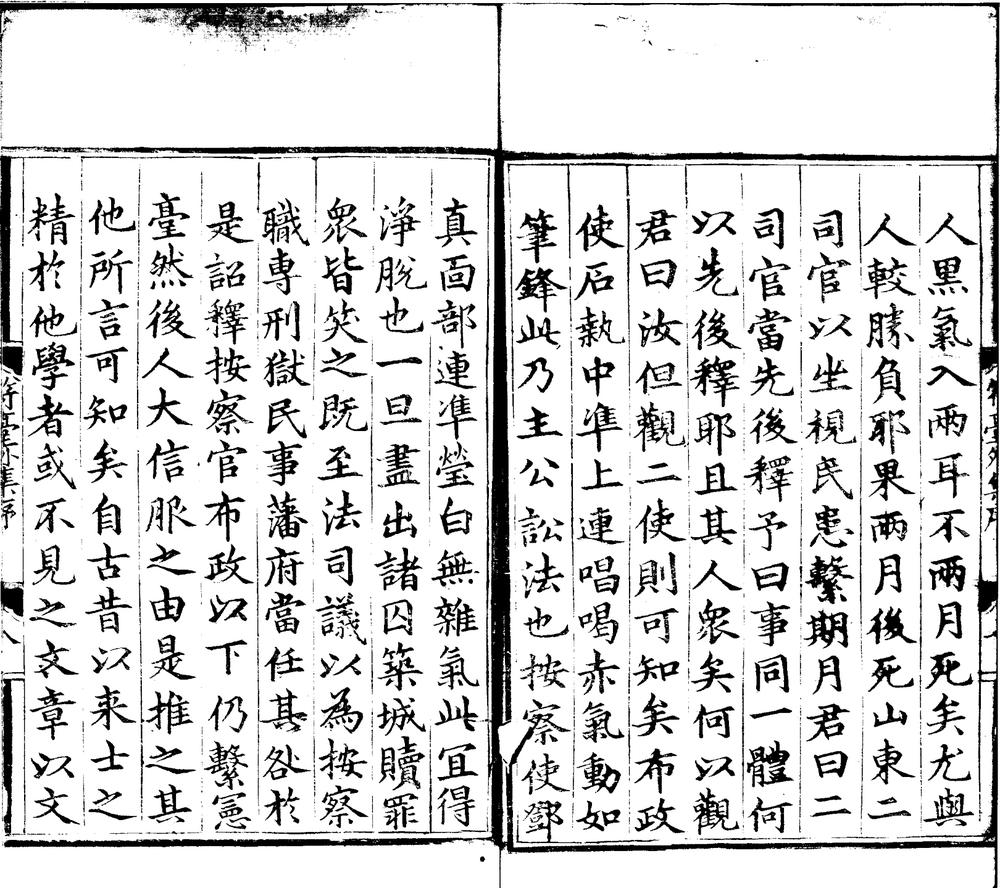 人黑氣入兩耳不兩月死矣尤與
人較勝負耶果兩月後死山東二
司官以坐視民患繫期月君曰二
司官當先後釋予曰事同一體何
以先後釋耶且其人衆矣何以觀
君曰汝但觀二使則可知矣布政
使石執中準上連唱喝赤氣動如
筆鋒此乃主公訟法也按察使鄧
真靣部連準瑩白無雜氣此宜得
淨脫也一旦盡出諸囚築城贖罪
衆皆笑之既至法司議以為按察
職專刑獄民事藩府當任其咎於
是詔釋按察官布政以下仍繫憲
臺然後人大信服之由是推之其
他所言可知矣自古昔以来士之
精於他學者或不見之文章以文